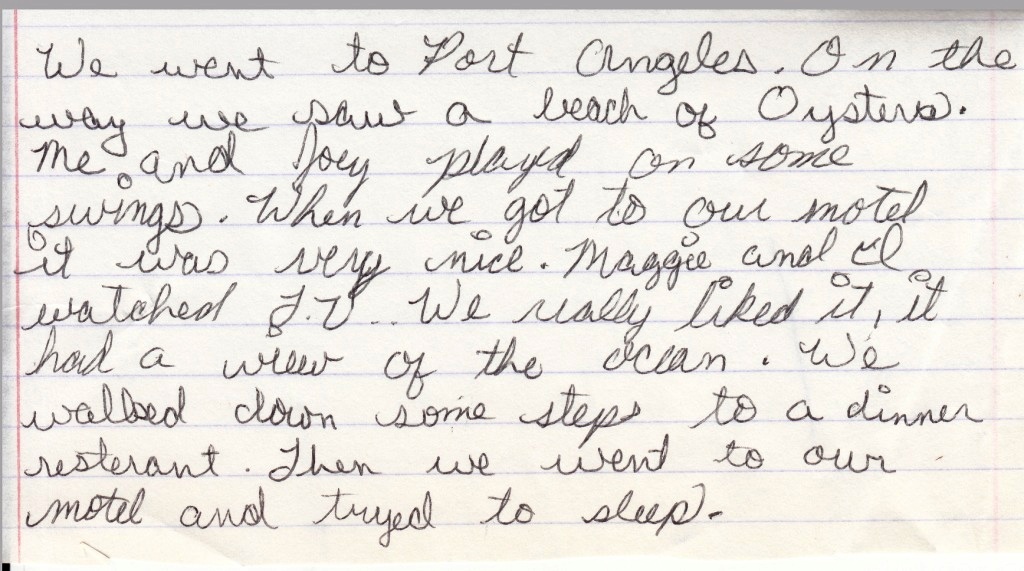 We went to Port Angeles. On the
way we saw a beach of Oysters.
Me and Joey played on some
swings. When we got to our motel
it was very nice. Maggie and I
watched T.V.. We really liked it, it
had a view of the ocean. We
walked down some steps to a dinner
resterant. Then we went to our
motel and tryed to sleep.